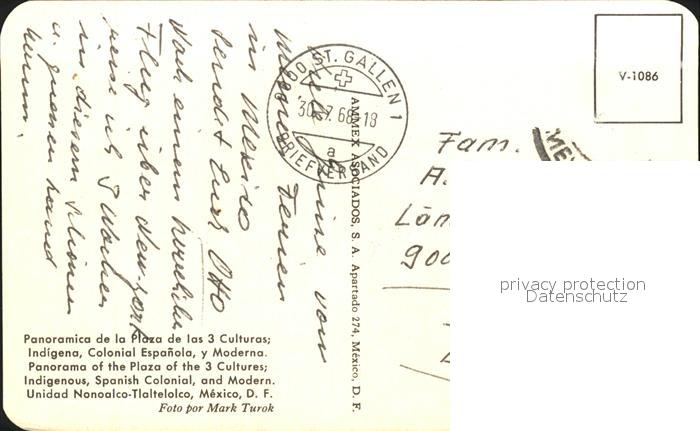 Viele Grüsse von
meinen Ferien
in Mexico
sendet Euch Otto
Nach einem herrlichen
Flug über New-York
reise ich 3 Wochen
in diesem schönen
u. grossen Land
herum.
9000 ST. GALLEN 1
30.7.68-18
a
BRIEFVERSAND
AMMEX ASOCIADOS, S. A. Apartado 274, México, D. F.
V-1086
Fam.
A.
900
privacy protection
Datenschutz
Panoramica de la Plaza de las 3 Culturas;
Indígena, Colonial Española, y Moderna.
Panorama of the Plaza of the 3 Cultures;
Indigenous, Spanish Colonial, and Modern.
Unidad Nonoalco-Tlaltelolco, México, D. F.
Foto por Mark Turok